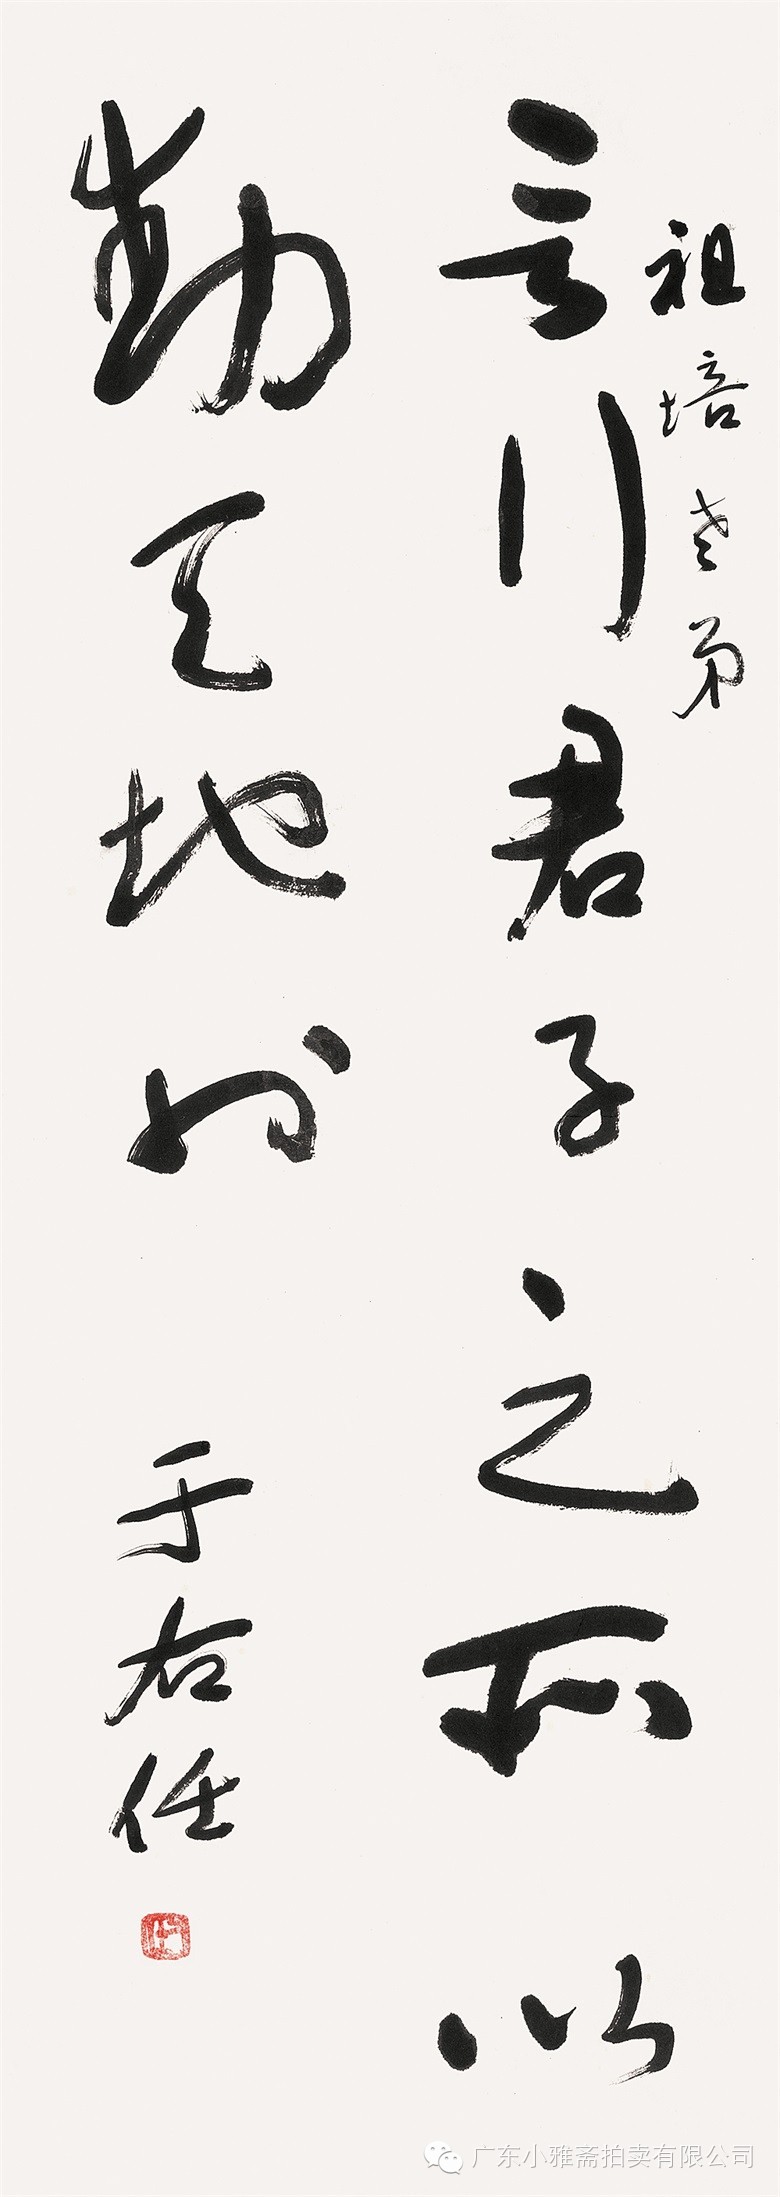 祖培老弟
言行君子之所以
動天地也
于右任
广东小雅斋拍卖有限公司